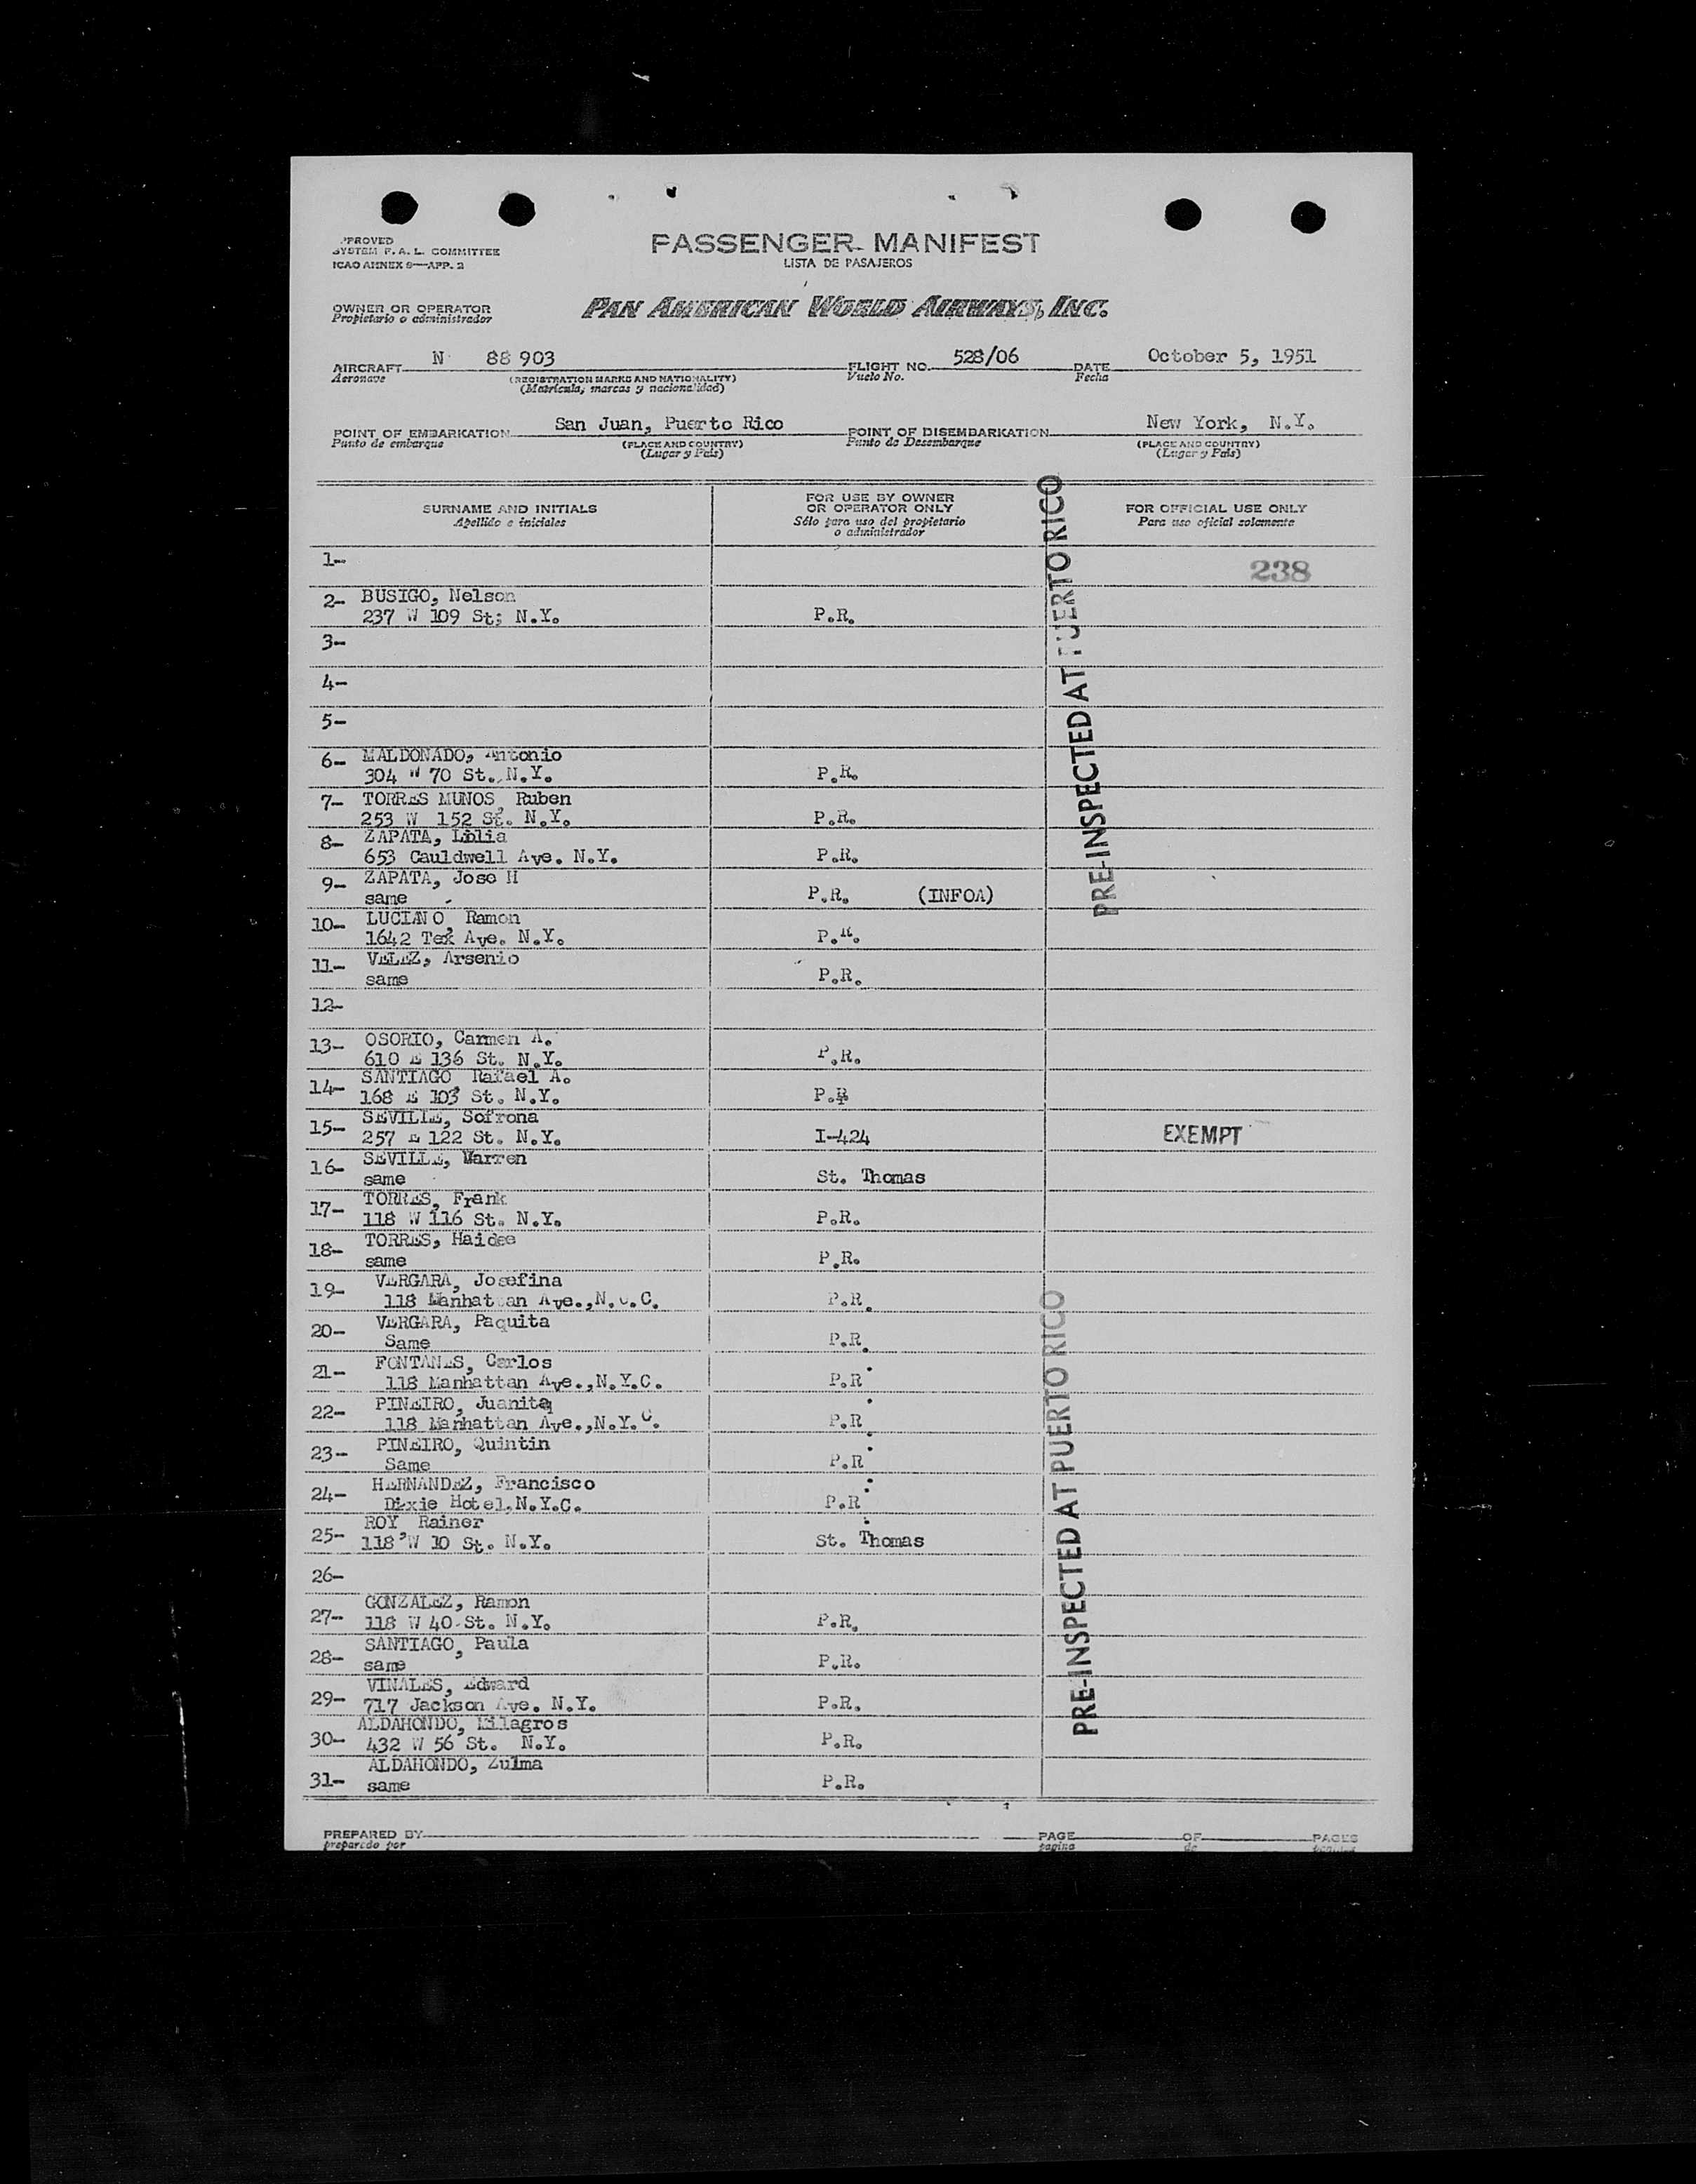 PASSENGER MANIFEST
LISTA DE PASAJEROS
SYSTEM F. A. L. COMMITTEE
ICAO ANNEX 9—APP. 2
OWNER OR OPERATOR
Propietario o administrador
PAN AMERICAN WORLD AIRWAYS, INC.
AIRCRAFT N 88 903 FLIGHT NO. 528/06 DATE October 5, 1951
Aeronave (REGISTRATION MARKS AND NATIONALITY) Vuelo No. Fecha
(Matrícula, marcas y nacionalidad)
POINT OF EMBARKATION San Juan, Puerto Rico POINT OF DISEMBARKATION New York, N.Y.
Punto de embarque (PLACE AND COUNTRY) Punto de Desembarque (PLACE AND COUNTRY)
(Lugar y País) (Lugar y País)
SURNAME AND INITIALS
Apellido e iniciales
FOR USE BY OWNER
OR OPERATOR ONLY
Sólo para uso del propietario
o administrador
FOR OFFICIAL USE ONLY
Para uso oficial solamente
1-
238
2- BUSIGO, Nelson
237 W 109 St; N.Y. P.R.
3-
4-
5-
6- MALDONADO, Antonio
304 W 70 St. N.Y. P.R.
7- TORRES MUNOS, Ruben
253 W 152 St. N.Y. P.R.
8- ZAPATA, Lilia
653 Cauldwell Ave. N.Y. P.R.
9- ZAPATA, Jose H
same P.R. (INFOA)
10- LUCIANO, Ramon
1642 Ave. N.Y. P.R.
11- VELEZ, Arsenio
same P.R.
12-
13- OSORIO, Carmen A.
610 E 136 St. N.Y. P.R.
14- SANTIAGO Rafael A.
168 E 103 St. N.Y. P.R
15- SEVILLE, Sofrona
257 E 122 St. N.Y. I-424 EXEMPT
16- SEVILLE, Warren
same St. Thomas
17- TORRES, Frank
118 W 116 St. N.Y. P.R.
18- TORRES, Haidee
same P.R.
19- VERGARA, Josefina
118 Manhattan Ave.,N.Y.C. P.R.
20- VERGARA, Paquita
Same P.R.
21- FONTANES, Carlos
118 Manhattan Ave.,N.Y.C. P.R.
22- PINEIRO, Juanita
118 Manhattan Ave.,N.Y.C. P.R.
23- PINEIRO, Quintin
Same P.R.
24- HERNANDEZ, Francisco
Dixie Hotel,N.Y.C. P.R.
25- ROY, Rainer
118 W 10 St. N.Y. St. Thomas
26-
27- GONZALEZ, Ramon
118 W 40 St. N.Y. P.R.
28- SANTIAGO, Paula
same P.R.
29- VINALES, Edward
717 Jackson Ave. N.Y. P.R.
30- ALDAHONDO, Milagros
432 W 56 St. N.Y. P.R.
31- ALDAHONDO, Zulma
same P.R.
PRE-INSPECTED AT PUERTO RICO
PRE-INSPECTED AT PUERTO RICO
PREPARED BY PAGE OF PAGES
preparado por pagina de